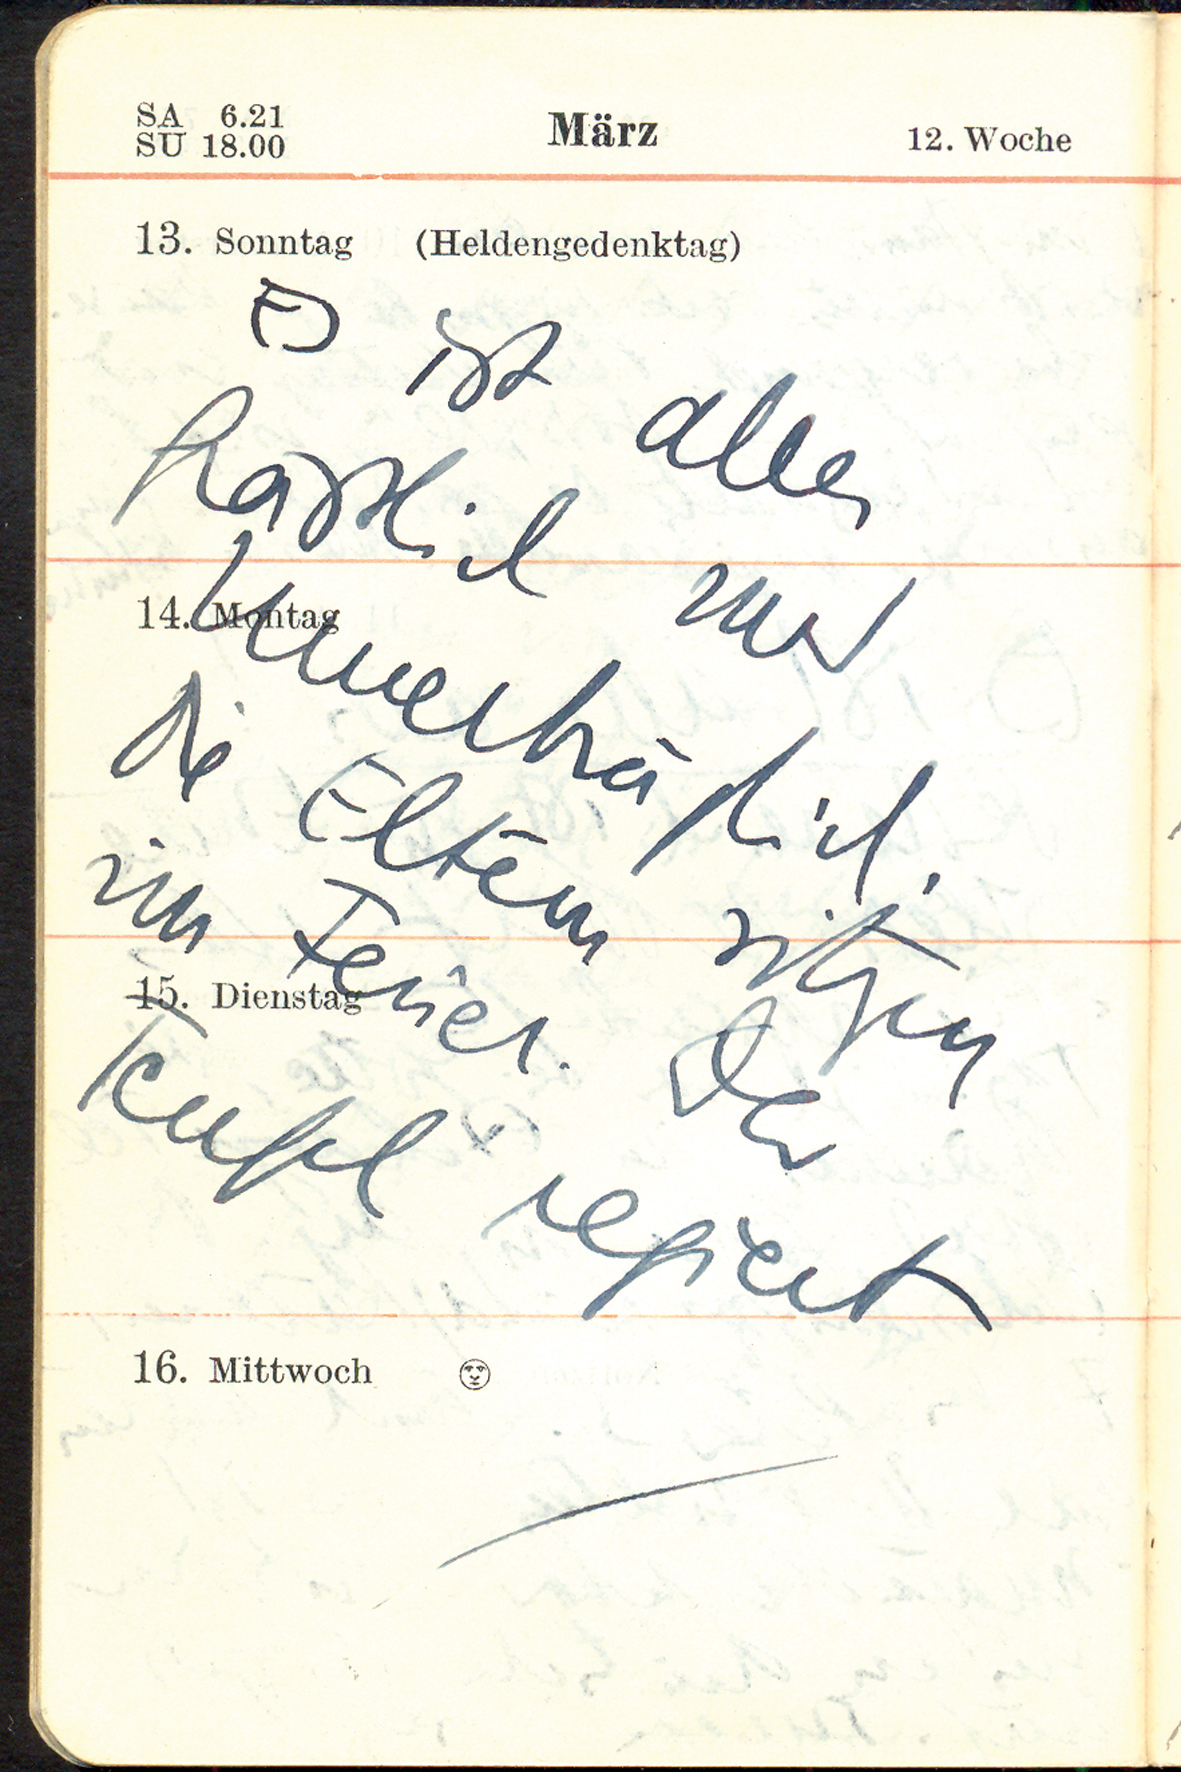 SA 6.21
SU 18.00
März
12. Woche
13. Sonntag (Heldengedenktag)
Es ist alles
hässlich und
14. Montag
unerträglich.
Die Eltern sitzen
im Feuer. Der
15. Dienstag
Teufel regiert
16. Mittwoch